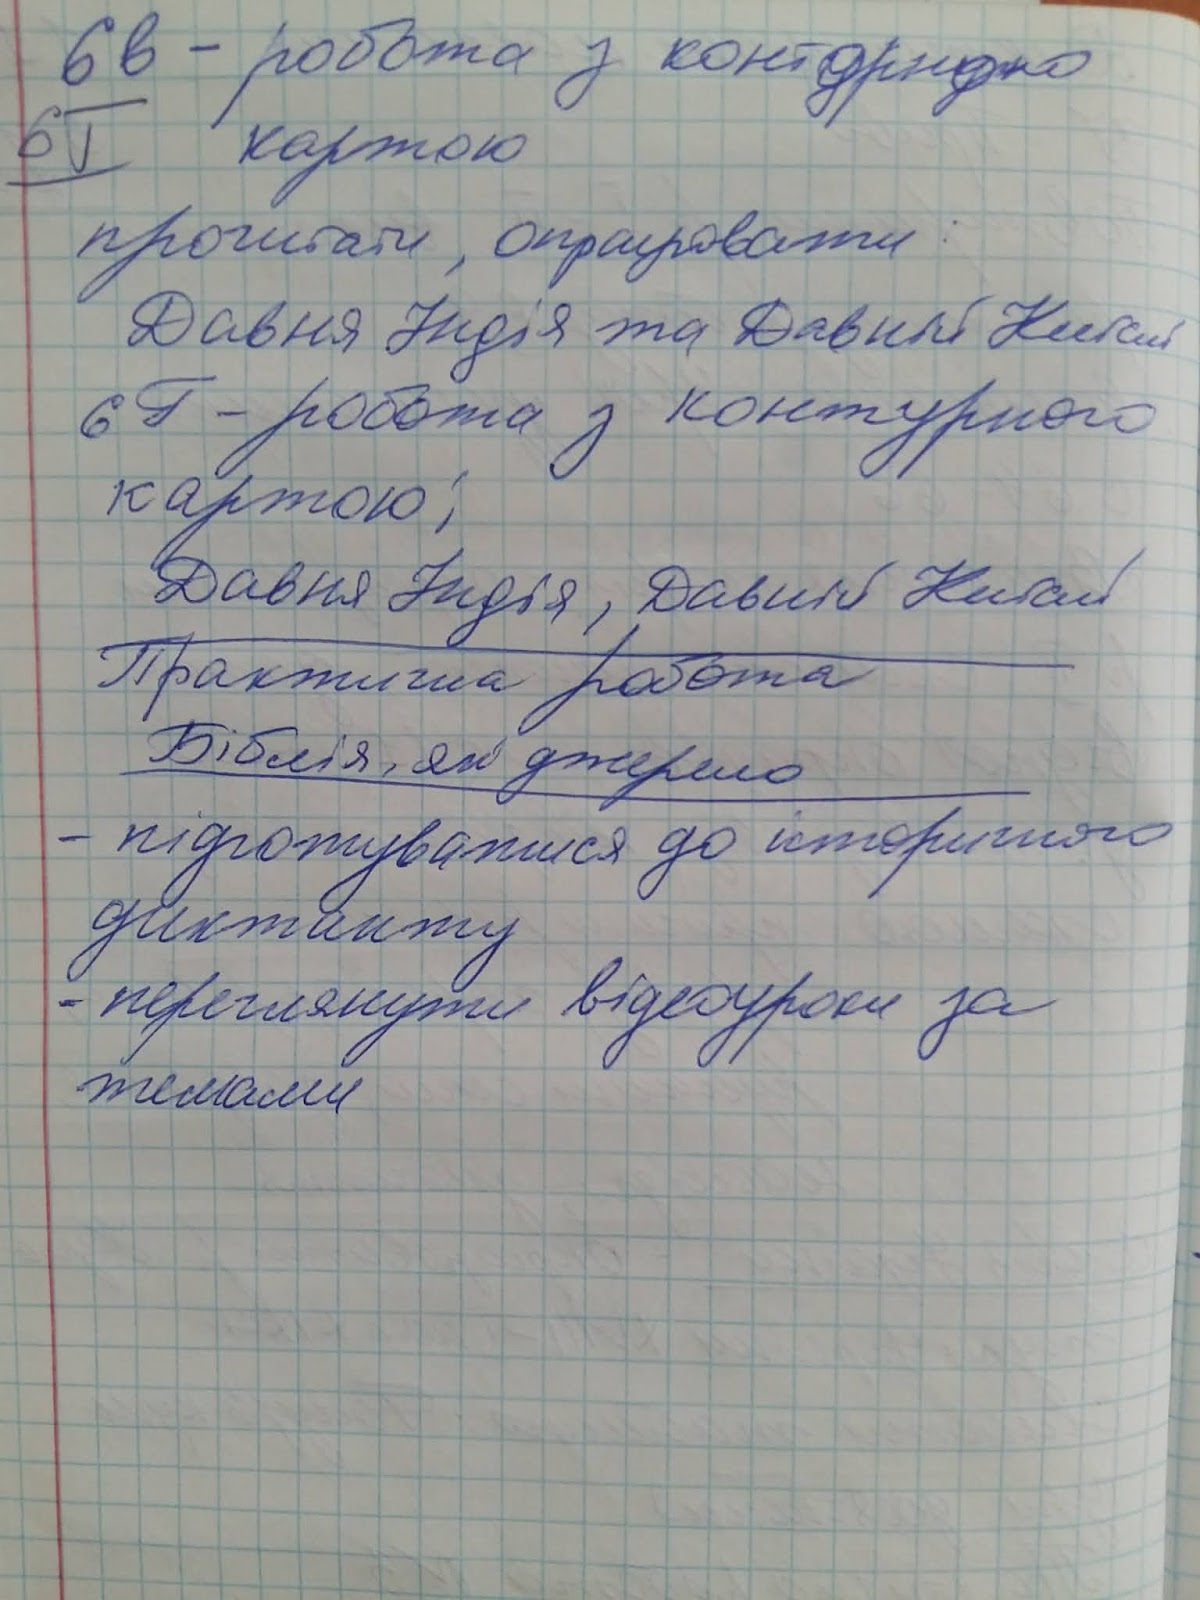 6в - робота з контурною
6Г картою
прочитати, опрацювати:
Давня Індія та Давній Китай
6Г - робота з контурного
картою;
Давня Індія, Давній Китай
Практична робота
Біблія, як джерело
- підготуватися до історичного
диктанту
- переглянути відеоуроки за
темами